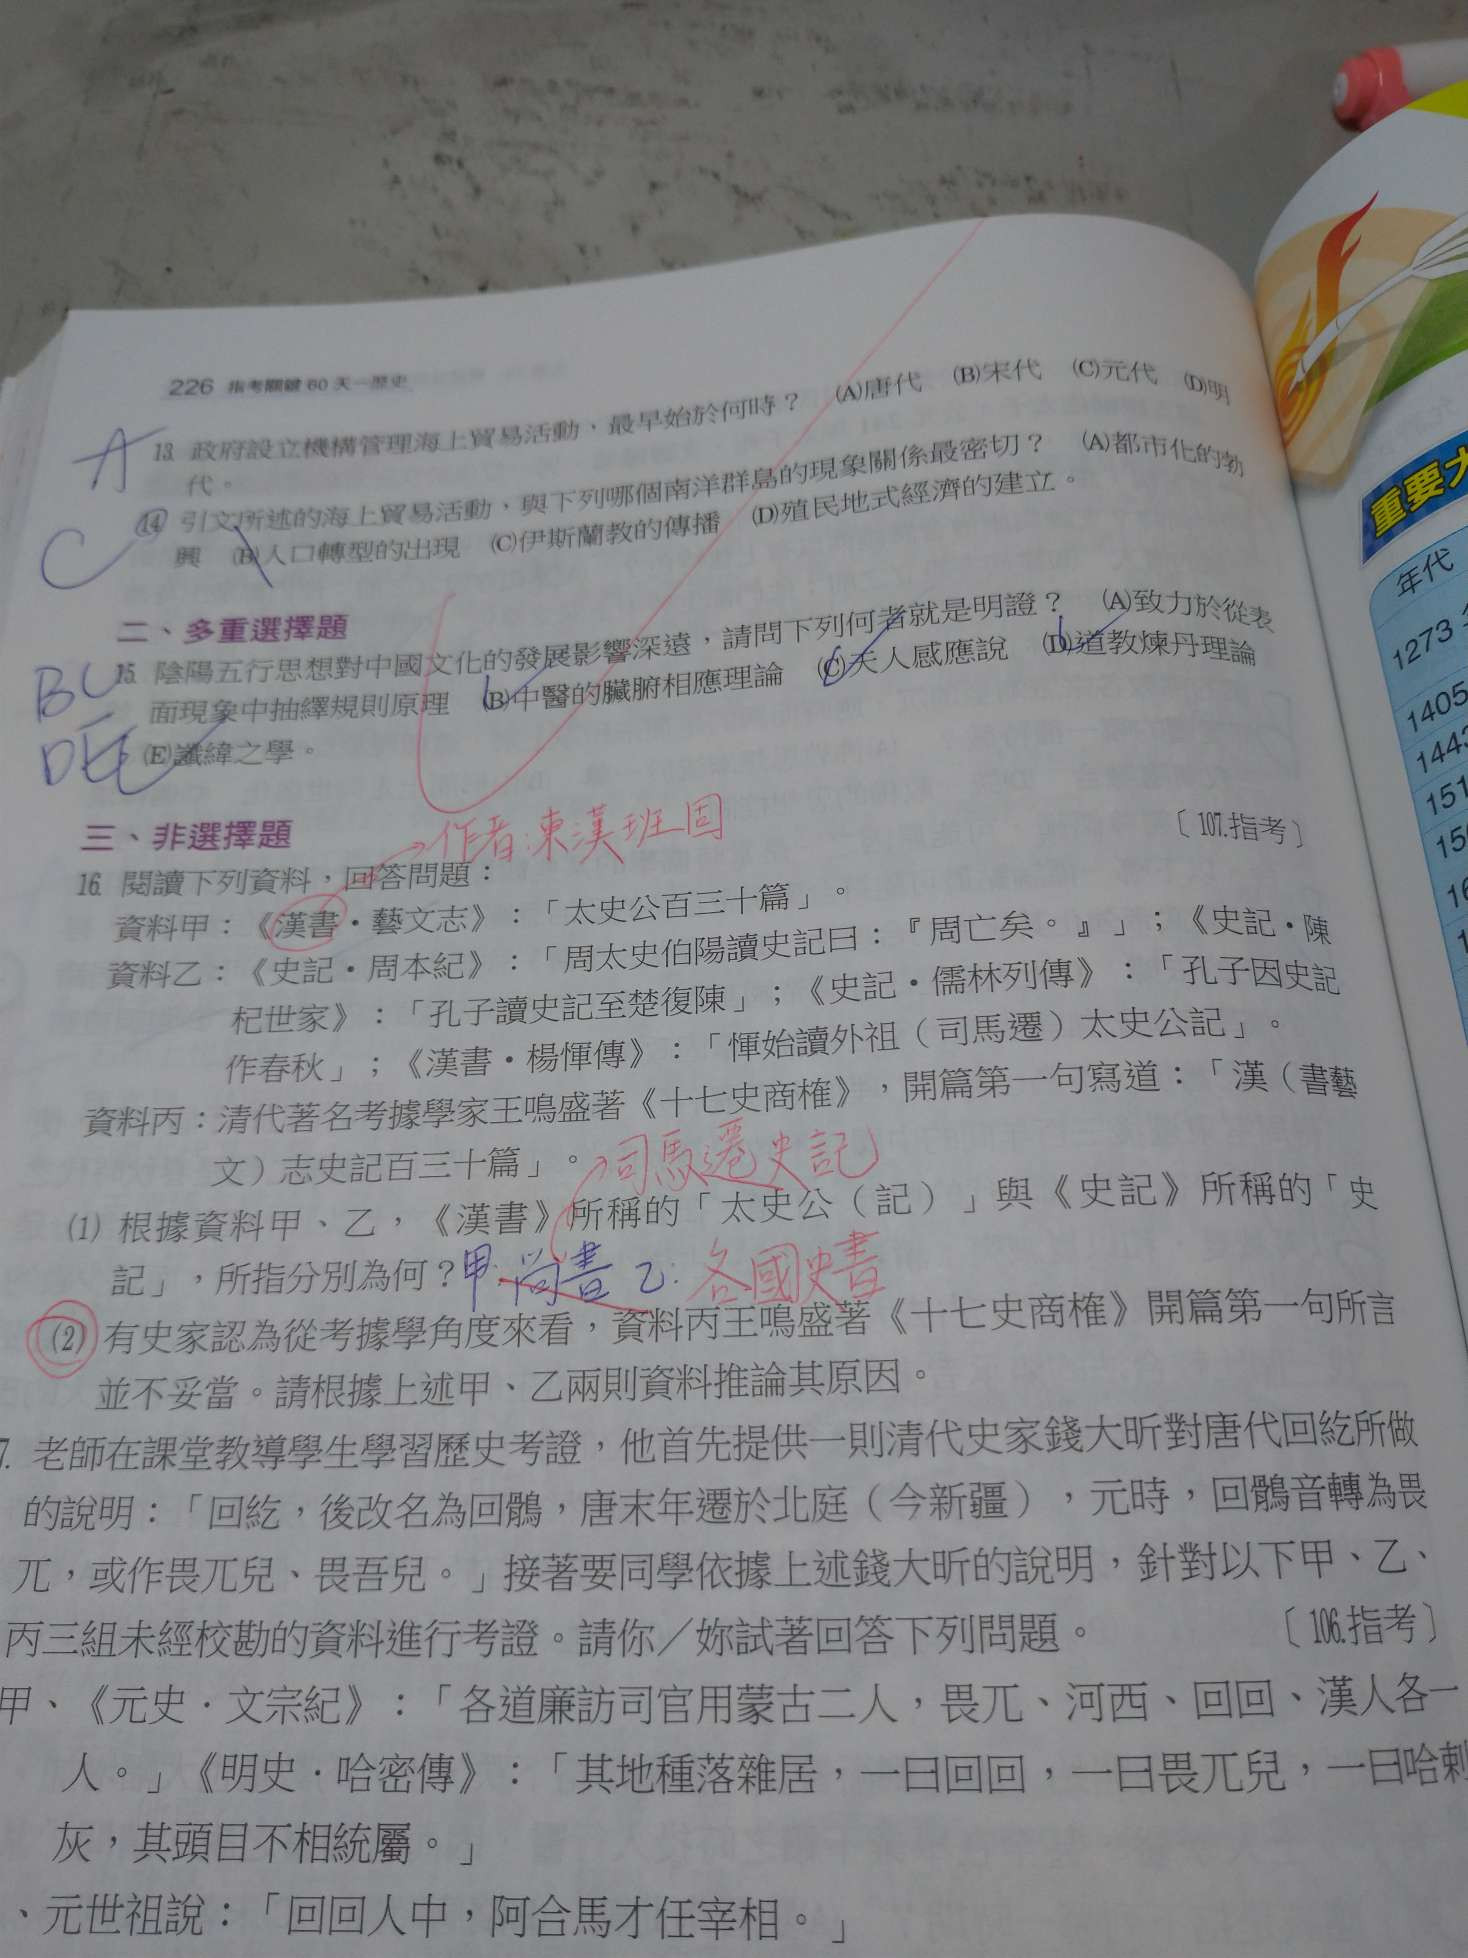 226 指考關鍵60天－歷史
A
13. 政府設立機構管理海上貿易活動，最早始於何時？ (A)唐代 (B)宋代 (C)元代 (D)明
代。
C
14. 引文所述的海上貿易活動，與下列哪個南洋群島的現象關係最密切？ (A)都市化的勃
興 (B)人口轉型的出現 (C)伊斯蘭教的傳播 (D)殖民地式經濟的建立。
二、多重選擇題
BC
DE
15. 陰陽五行思想對中國文化的發展影響深遠，請問下列何者就是明證？ (A)致力於從表
面現象中抽繹規則原理 (B)中醫的臟腑相應理論 (C)天人感應說 (D)道教煉丹理論
(E)讖緯之學。
三、非選擇題
作者：東漢班固
16. 閱讀下列資料，回答問題： 〔107.指考〕
資料甲：《漢書‧藝文志》：「太史公百三十篇」。
資料乙：《史記‧周本紀》：「周太史伯陽讀史記曰：『周亡矣。』」；《史記‧陳
杞世家》：「孔子讀史記至楚復陳」；《史記‧儒林列傳》：「孔子因史記
作春秋」；《漢書‧楊惲傳》：「惲始讀外祖（司馬遷）太史公記」。
資料丙：清代著名考據學家王鳴盛著《十七史商榷》，開篇第一句寫道：「漢（書藝
文）志史記百三十篇」。
司馬遷史記
(1) 根據資料甲、乙，《漢書》所稱的「太史公（記）」與《史記》所稱的「史
記」，所指分別為何？
甲：尚書 乙：各國史書
(2) 有史家認為從考據學角度來看，資料丙王鳴盛著《十七史商榷》開篇第一句所言
並不妥當。請根據上述甲、乙兩則資料推論其原因。
7. 老師在課堂教導學生學習歷史考證，他首先提供一則清代史家錢大昕對唐代回紇所做
的說明：「回紇，後改名為回鶻，唐末年遷於北庭（今新疆），元時，回鶻音轉為畏
兀，或作畏兀兒、畏吾兒。」接著要同學依據上述錢大昕的說明，針對以下甲、乙、
丙三組未經校勘的資料進行考證。請你／妳試著回答下列問題。 〔106.指考〕
甲、《元史．文宗紀》：「各道廉訪司官用蒙古二人，畏兀、河西、回回、漢人各一
人。」《明史．哈密傳》：「其地種落雜居，一曰回回，一曰畏兀兒，一曰哈剌
灰，其頭目不相統屬。」
、元世祖說：「回回人中，阿合馬才任宰相。」
重要大
年代
1273
1405